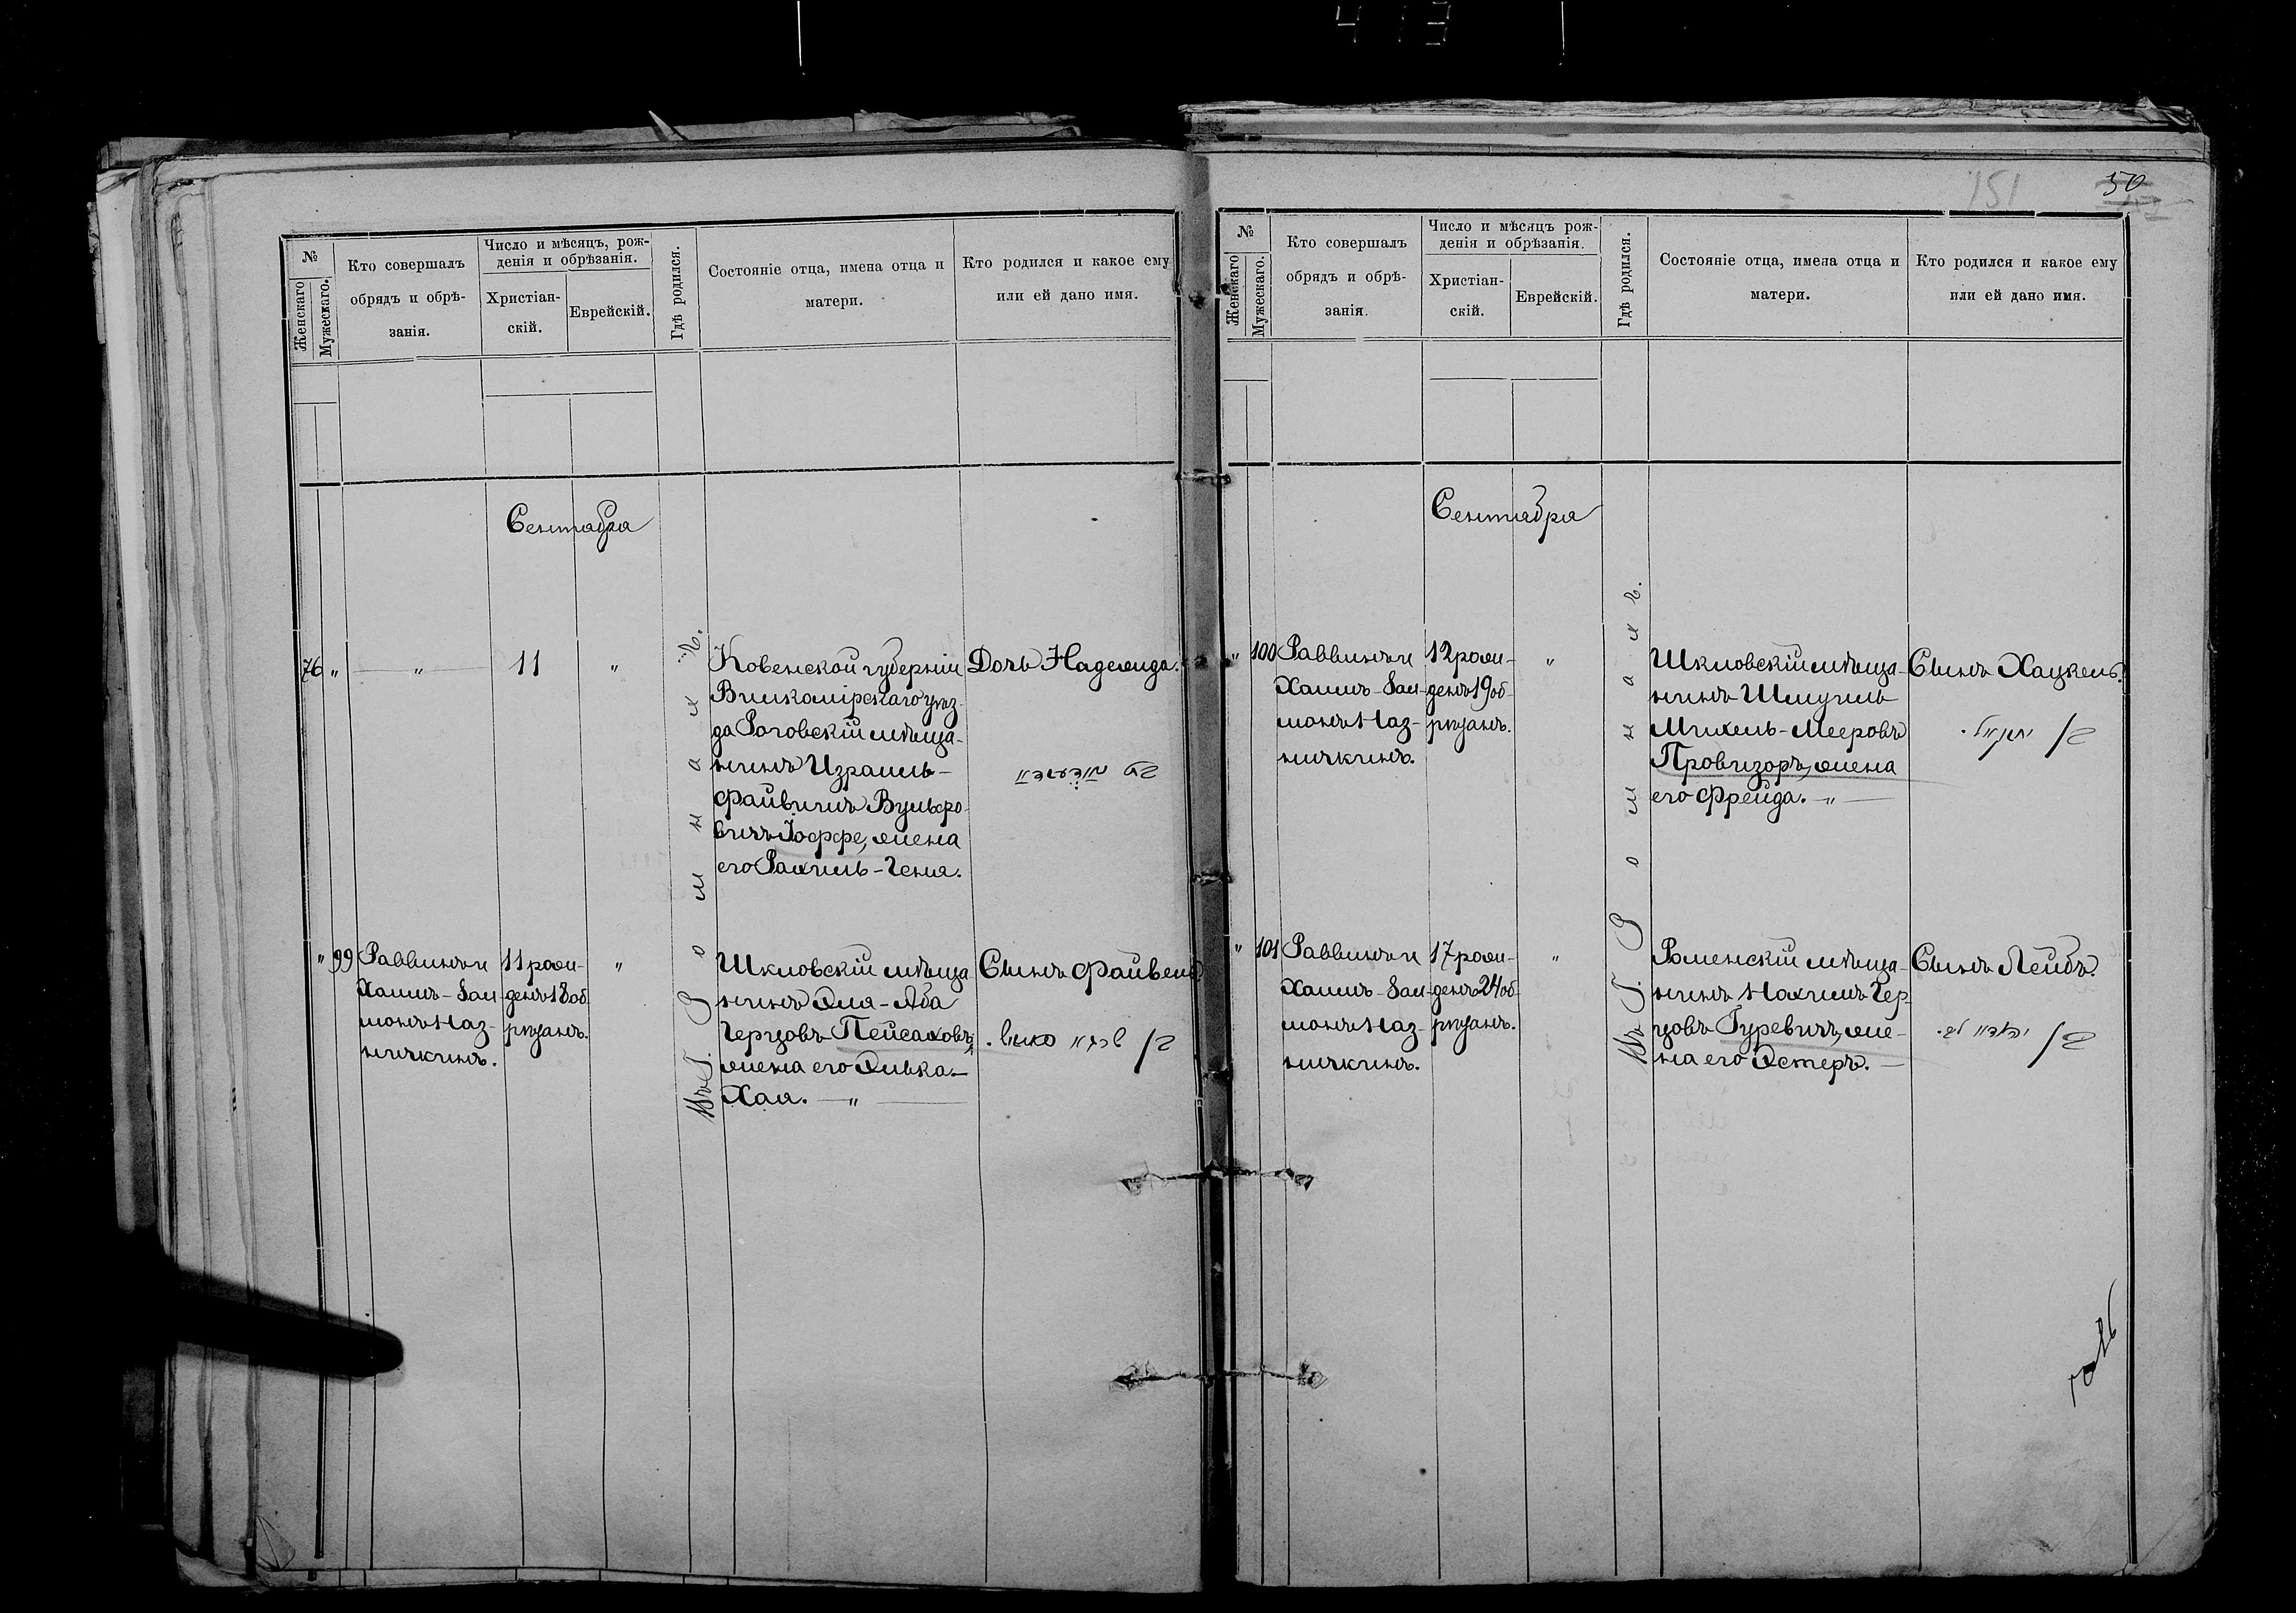 413
151
50
№
Женскаго
Мужескаго.
Кто совершалъ
обрядъ и обрѣ-
занія.
Число и мѣсяцъ, рож-
денія и обрѣзанія.
Христіан-
скій.
Еврейскій.
Гдѣ родился.
Состояніе отца, имена отца и
матери.
Кто родился и какое ему
или ей дано имя.
Сентября
76 " — " — 11 "
Ковенской губерніи
Вилкомірскаго уѣз-
да Роговскій мѣща-
нинъ Израиль-
Файвишъ Вульфо-
вичъ Іоффе, жена
его Рахиль-Геня.
Дочь Надежда.
" 99
Раввинъ и
Хаимъ-Зал-
монъ Наз-
ничкинъ.
11 рож-
денъ 18 об
рѣзанъ.
"
Шкловскій мѣща
нинъ Эля-Аба
Герцовъ Пейсаховъ,
жена его Элька-
Хая. — " —
Сынъ Файвель
Въ Г. Ромнахъ.
№
Женскаго
Мужескаго.
Кто совершалъ
обрядъ и обрѣ-
занія.
Число и мѣсяцъ рож-
денія и обрѣзанія.
Христіан-
скій.
Еврейскій.
Гдѣ родился.
Состояніе отца, имена отца и
матери.
Кто родился и какое ему
или ей дано имя.
Сентября
" 100
Раввинъ и
Хаимъ-Зал-
монъ Наз-
ничкинъ.
12 рож-
денъ 19 об-
рѣзанъ.
"
Шкловскій мѣща-
нинъ Шмуиль
Михель-Мееровъ
Провизоръ, жена
его Фрейда. — " —
Сынъ Хацкель.
" 101
Раввинъ и
Хаимъ-Зал-
монъ Наз-
ничкинъ.
17 рож-
денъ 24 об-
рѣзанъ.
"
Роменскій мѣща-
нинъ Нахимъ Гер
цовъ Гуревичъ, же-
на его Эстеръ. —
Сынъ Лейбъ.
Въ Г. Ромнахъ.